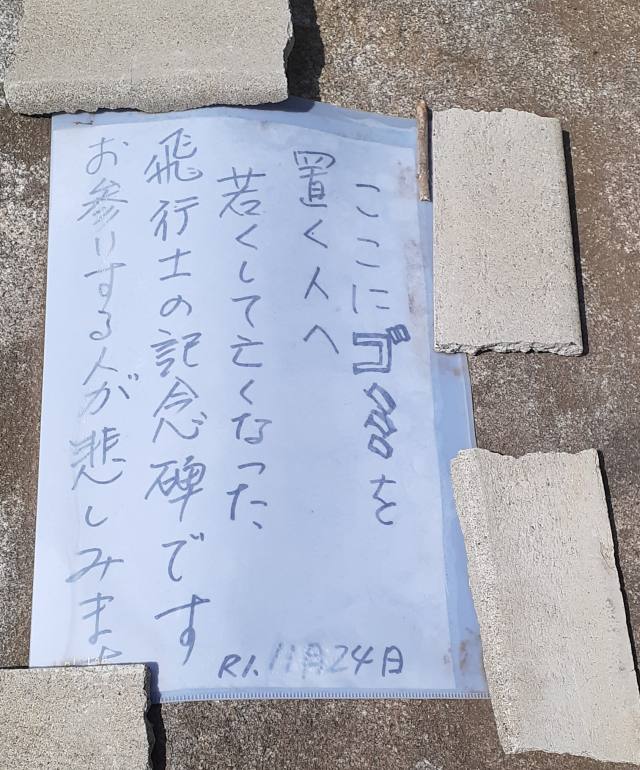 ここにゴミを
置く人へ
若くして亡くなった、
飛行士の記念碑です
お参りする人が悲しみます
R1.11月24日